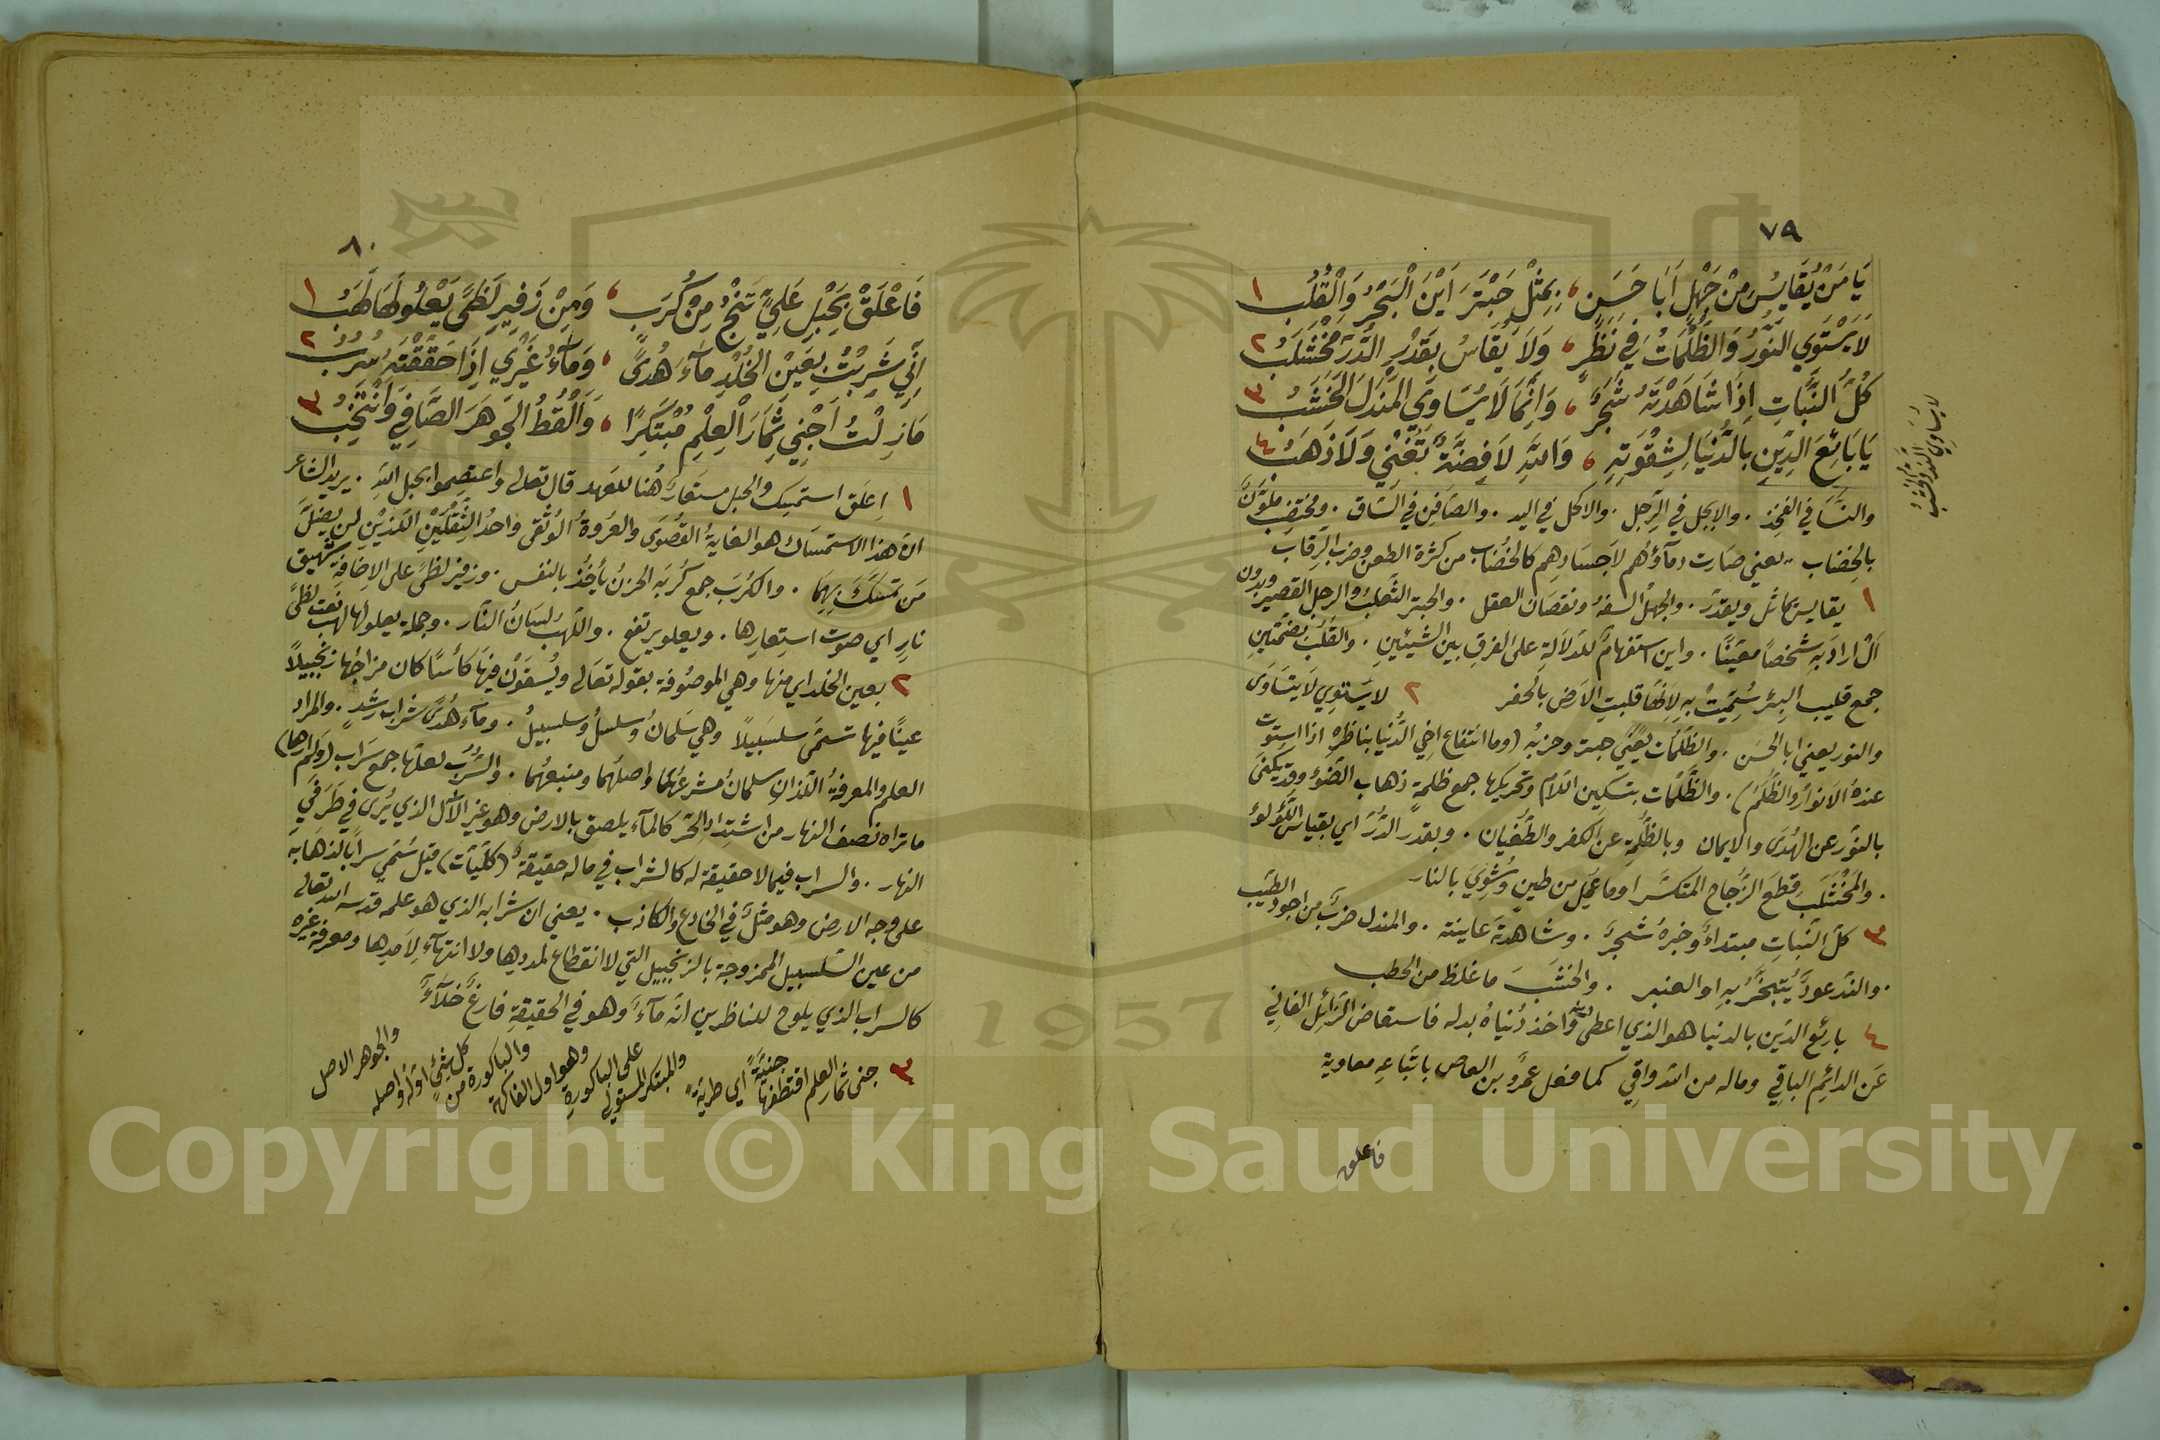 ٧٩
يَا مَنْ يُقَايِسُ مِنْ جَهْلٍ اَبَا حَسَنٍ ، بِمِثْلِ حَبْتَرَ اَيْنَ الْبَحْرُ وَالْقُلُبُ ١
لَا يَسْتَوِي النُّورُ وَالظُّلْمَاتُ فِي نَظَرٍ ، وَلَا يُقَاسُ بِقَدْرِ الدُّرِّ مَخْشَلَبُ ٢
كُلُّ النَّبَاتِ اِذَا شَاهَدْتَهُ شَجَرٌ ، وَاِنَّمَا لَا يُسَاوِي المَنْدَلَ الخَشَبُ ٣
يَا بَائِعَ الدِّينِ بِالدُّنْيَا لِشِقْوَتِهِ ، وَاللّٰهِ لَا فِضَّةٌ تُغْنِي وَلَا ذَهَبُ ٤
لا يساوي الند والخشب
والنَّسَا في الفخِذ . والابجل في الرِّجل . والاكحل في اليد . والصَافِن في السّاق . ومُختضِب ملوَّن
بالخِضاب .. يعني صَارت دمآؤُهم لاجسادِهم كالخُضاب من كثرة الطعن وضرب الرِقاب
١ يقايس يماثل ويقدّر . والجهلُ السفهُ ونقصَان العقل . والحبتر الثعلبُ والرجل القصير وبدون
اَلْ اراد به شخصًا معيَّنًا . واين استفهامٌ للدلالةِ على الفرقِ بين الشيئينِ . والقُلُبُ بضمّتَينِ
جمع قليب البئر سُمِّيَتْ به لانّها قلبتِ الارض بالحفر ٢ لا يَستوِي لا يتسَاوَى
والنور يعني ابا الحسَن . والظُلُمَات يعني حبتر وحزبهُ (وما انتفاع اخي الدُنيا بناظرِهِ اذا استوت
عندهُ الانوارُ والظُلَمُ) . والظُلُمَات بتسكين اللام وتحريكها جمع ظلمةٍ ذهاب الضَوْءِ وقد يكنى
بالنّور عن الهُدَى والايمان وبالظُّلمةِ عن الكفر والطُغيان . وبقدر الدُرّ اي بقياس اللؤلؤ
. والمَخْشَلَب قطعَ الزُجاج المتكسّر او ما عُمِل من طينٍ وشُوِيَ بالنار
٣ كلّ النّباتِ مبتدأٌ وخبرهُ شجرٌ . وشاهدتهُ عاينته . والمندل ضربٌ من اجود الطيب
. والند عودٌ يُتبخَّرُ بهِ او العنبر . والخشَبَ ما غلظ من الحطب
٤ بايع الدّين بالدنيا هو الذي اعطى دينه واخذ دُنياهُ بدله فاستعاض الزائِل الفاني
عَن الدائِم الباقي وماله من الله واقي كما فعل عمروُ بن العاص باتّباعِهِ معاوية
فاعلق
٨٠
فَاعْلَقْ بِحَبْلِ عَلِيٍّ تَنْجُ مِنْ كُرَبٍ ، وَمِنْ زَفِيرِ لَظًى يَعْلُو لَهَا لَهَبُ ١
اِنِّي شَرِبْتُ بِعَيْنِ الخُلْدِ مَآءَ هُدًى ، وَمَآءُ غَيْرِي اِذَا حَقَّقْتَهُ سُرُبُ ٢
مَا زِلْتُ اَجْنِي ثِمَارَ الْعِلْمِ مُبْتَكِرًا ، وَالْقُطُ الجَوهَرَ الصَّافِي وَانْتَخِبُ ٣
١ اِعلَق استمسِك والحبل مستعارٌ هُنا للعَهد قال تعالى واعتصِموا بحبل اللهِ . يريد الشاعر
انّ هذا الاستمسَاك هو الغايةُ القُصْوَى والعُروةُ الوُثقى واحدُ الثقَلَيْنِ اللذيْنِ لن يضلَّ
مَن تمسَّكَ بهِمَا . والكُرَبَ جمع كُربَه الحزنُ يأخذُ بالنفس . وزفير لظًى على الاضافةِ شهيق
نارٍ اي صوت استعارِها . ويعلو يرتفع . واللّهب لِسَانُ النّار . وجملة يعلو لها لهب نعت لظًى
٢ بعين الخلد اي منها وهي الموصُوفة بقوله تعالى ويُسقَوْن فيها كأسًا كان مزاجُها زنجبيلاً
عينًا فيها تسمّى سلسَبيلاً وهي سَلمانُ وسلسلُ وسلسبيلُ . ومآء هُدًى شراب رشدٍ . والمراد
العلم والمعرفةُ اللذانِ سلمانُ مشرعُهُما واصلهُما ومنبعهُما . والسُّرُبُ لعلّها جمع سَرَابٍ (ولم ارها)
ما تراه نصف النهار من اشتِدادِ الحرّ كالمآء يلصق بالارض وهو غير الآل الذي يُرى في طَرَفي
النهار . والسراب فيما لا حقيقة له كالشراب في ماله حقيقةٌ (كليّات) قيل سُمّي سرابًا لذهَابه
على وجه الارض وهو مثلٌ في الخادع والكاذب . يعني ان شرابه الذي هو علمه قدسه الله تعالى
من عين السّلسبيل الممزوجة بالزنجبيل التي لا انقطاع لمددِها ولا انتهآء لامَدِها ومعرفة غيره
كالسراب الذي يلوح للناظرين انّه مآءٌ وهو في الحقيقةِ فارغٌ خلآءٌ
٣ جنى ثمار العلم اقتطفها جنيّةً اي طريّةً والمبتكر المستولي على الباكورةِ وهو اول الفاكهة والباكورة من كل شيْءٍ اوّله واصله والجوهر الاصل
Copyright © King Saud University
1957